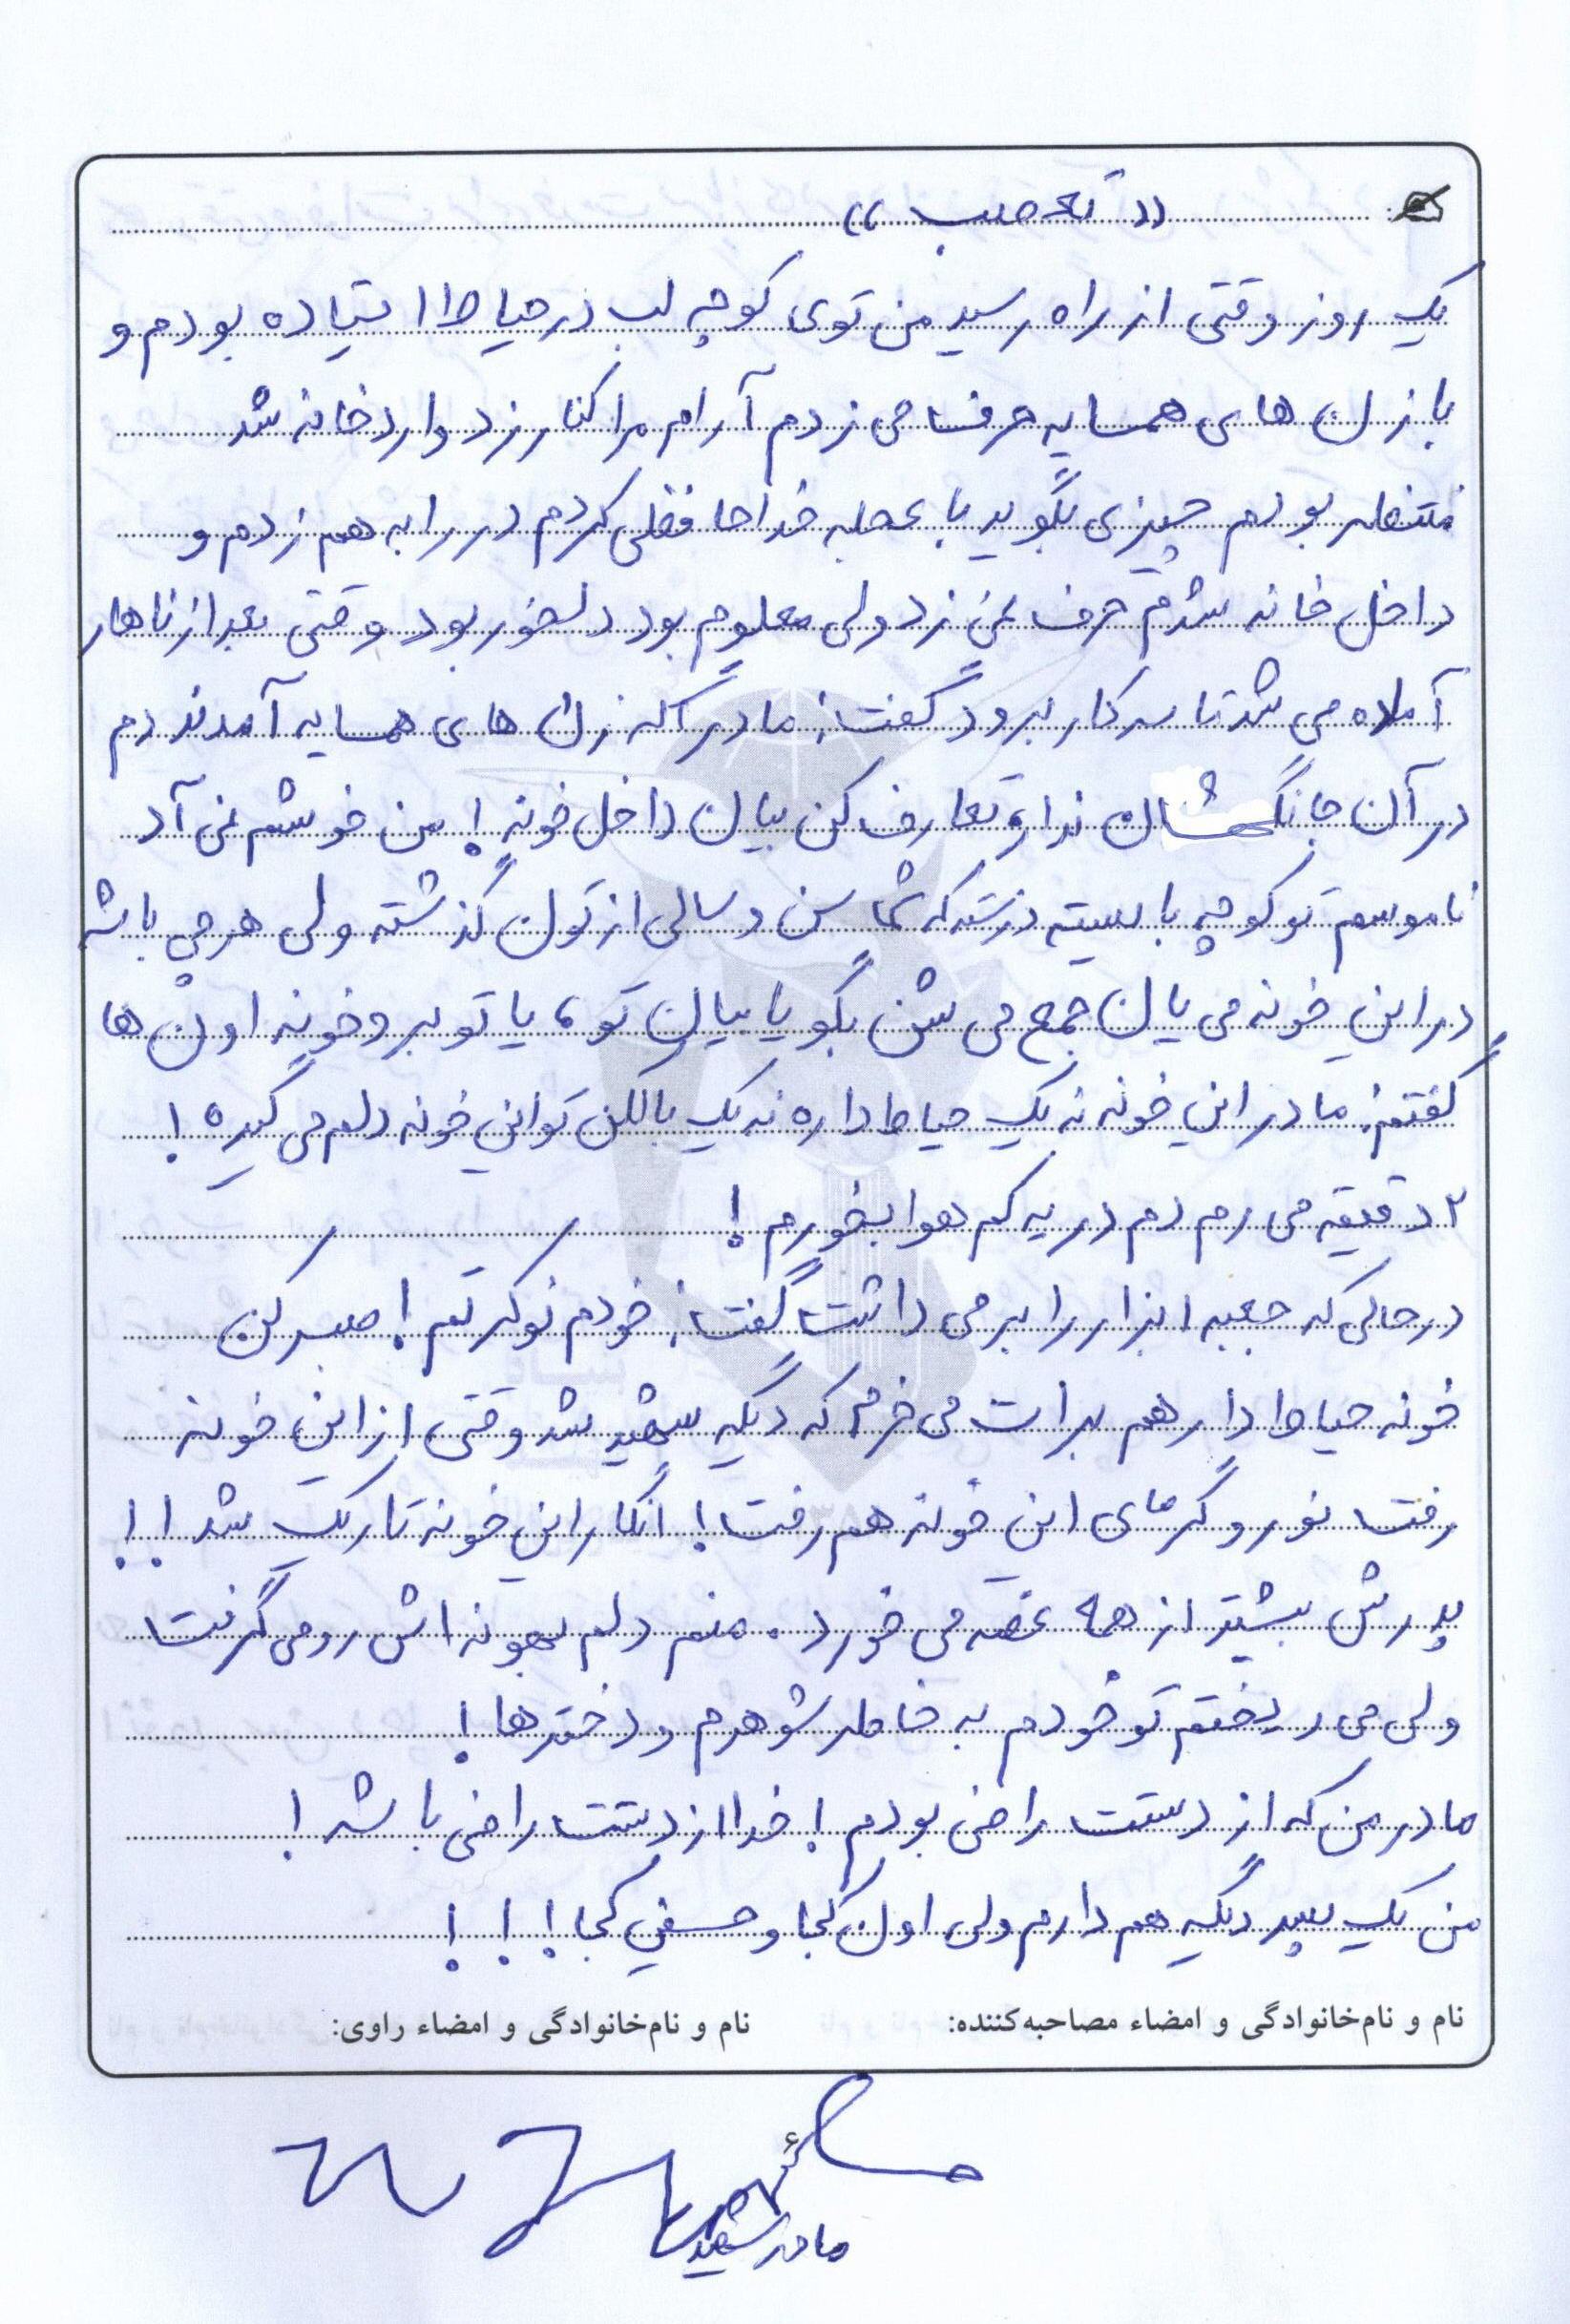 (( تعصب ))
یک روز وقتی از راه رسید من توی کوچه لب در حیاط استیاده بودم و
با زن های همسایه حرف می زدم آرام مرا کنار زد وارد خانه شد
منتظر بودم چیزی بگوید با عجله خداحافظی کردم در را به هم زدم و
داخل خانه شدم حرف نمی زد ولی معلوم بود دلخور بود وقتی بعد از ناهار
آماده می شد تا سر کار برود گفت: مادر اگه زن های همسایه آمدند دم
در آن جا نگهشان ندار، تعارف کن بیان داخل خونه! من خوشم نمی آد
ناموسم تو کوچه بایسته درسته که شما سن و سالی ازتون گذشته ولی هر چی باشه
در این خونه می یان جمع می شن بگو یا بیان تو، یا تو برو خونه اون ها
گفتم: مادر این خونه نه یک حیاط داره نه یک بالکن تو این خونه دلم می گیره!
۲ دقیقه می رم دم در یه کم هوا بخورم!
در حالی که جعبه ابزار را بر می داشت گفت: خودم نوکرتم! صبر کن
خونه حیاط دار هم برات می خرم که دیگه شهید شد وقتی از این خونه
رفت نور و گرمای این خونه هم رفت! انگار این خونه تاریک شد!!
پدرش بیشتر از همه غصه می خورد. منم دلم بهونه اش رو می گرفت
ولی می ریختم تو خودم به خاطر شوهرم و دخترها!
مادر من که از دستت راضی بودم! خدا از دستت راضی باشه!
من یک پسر دیگه هم دارم ولی اون کجا و حسین کجا!!!
نام و نام‌خانوادگی و امضاء مصاحبه‌کننده: نام و نام‌خانوادگی و امضاء راوی:
مادر شهید